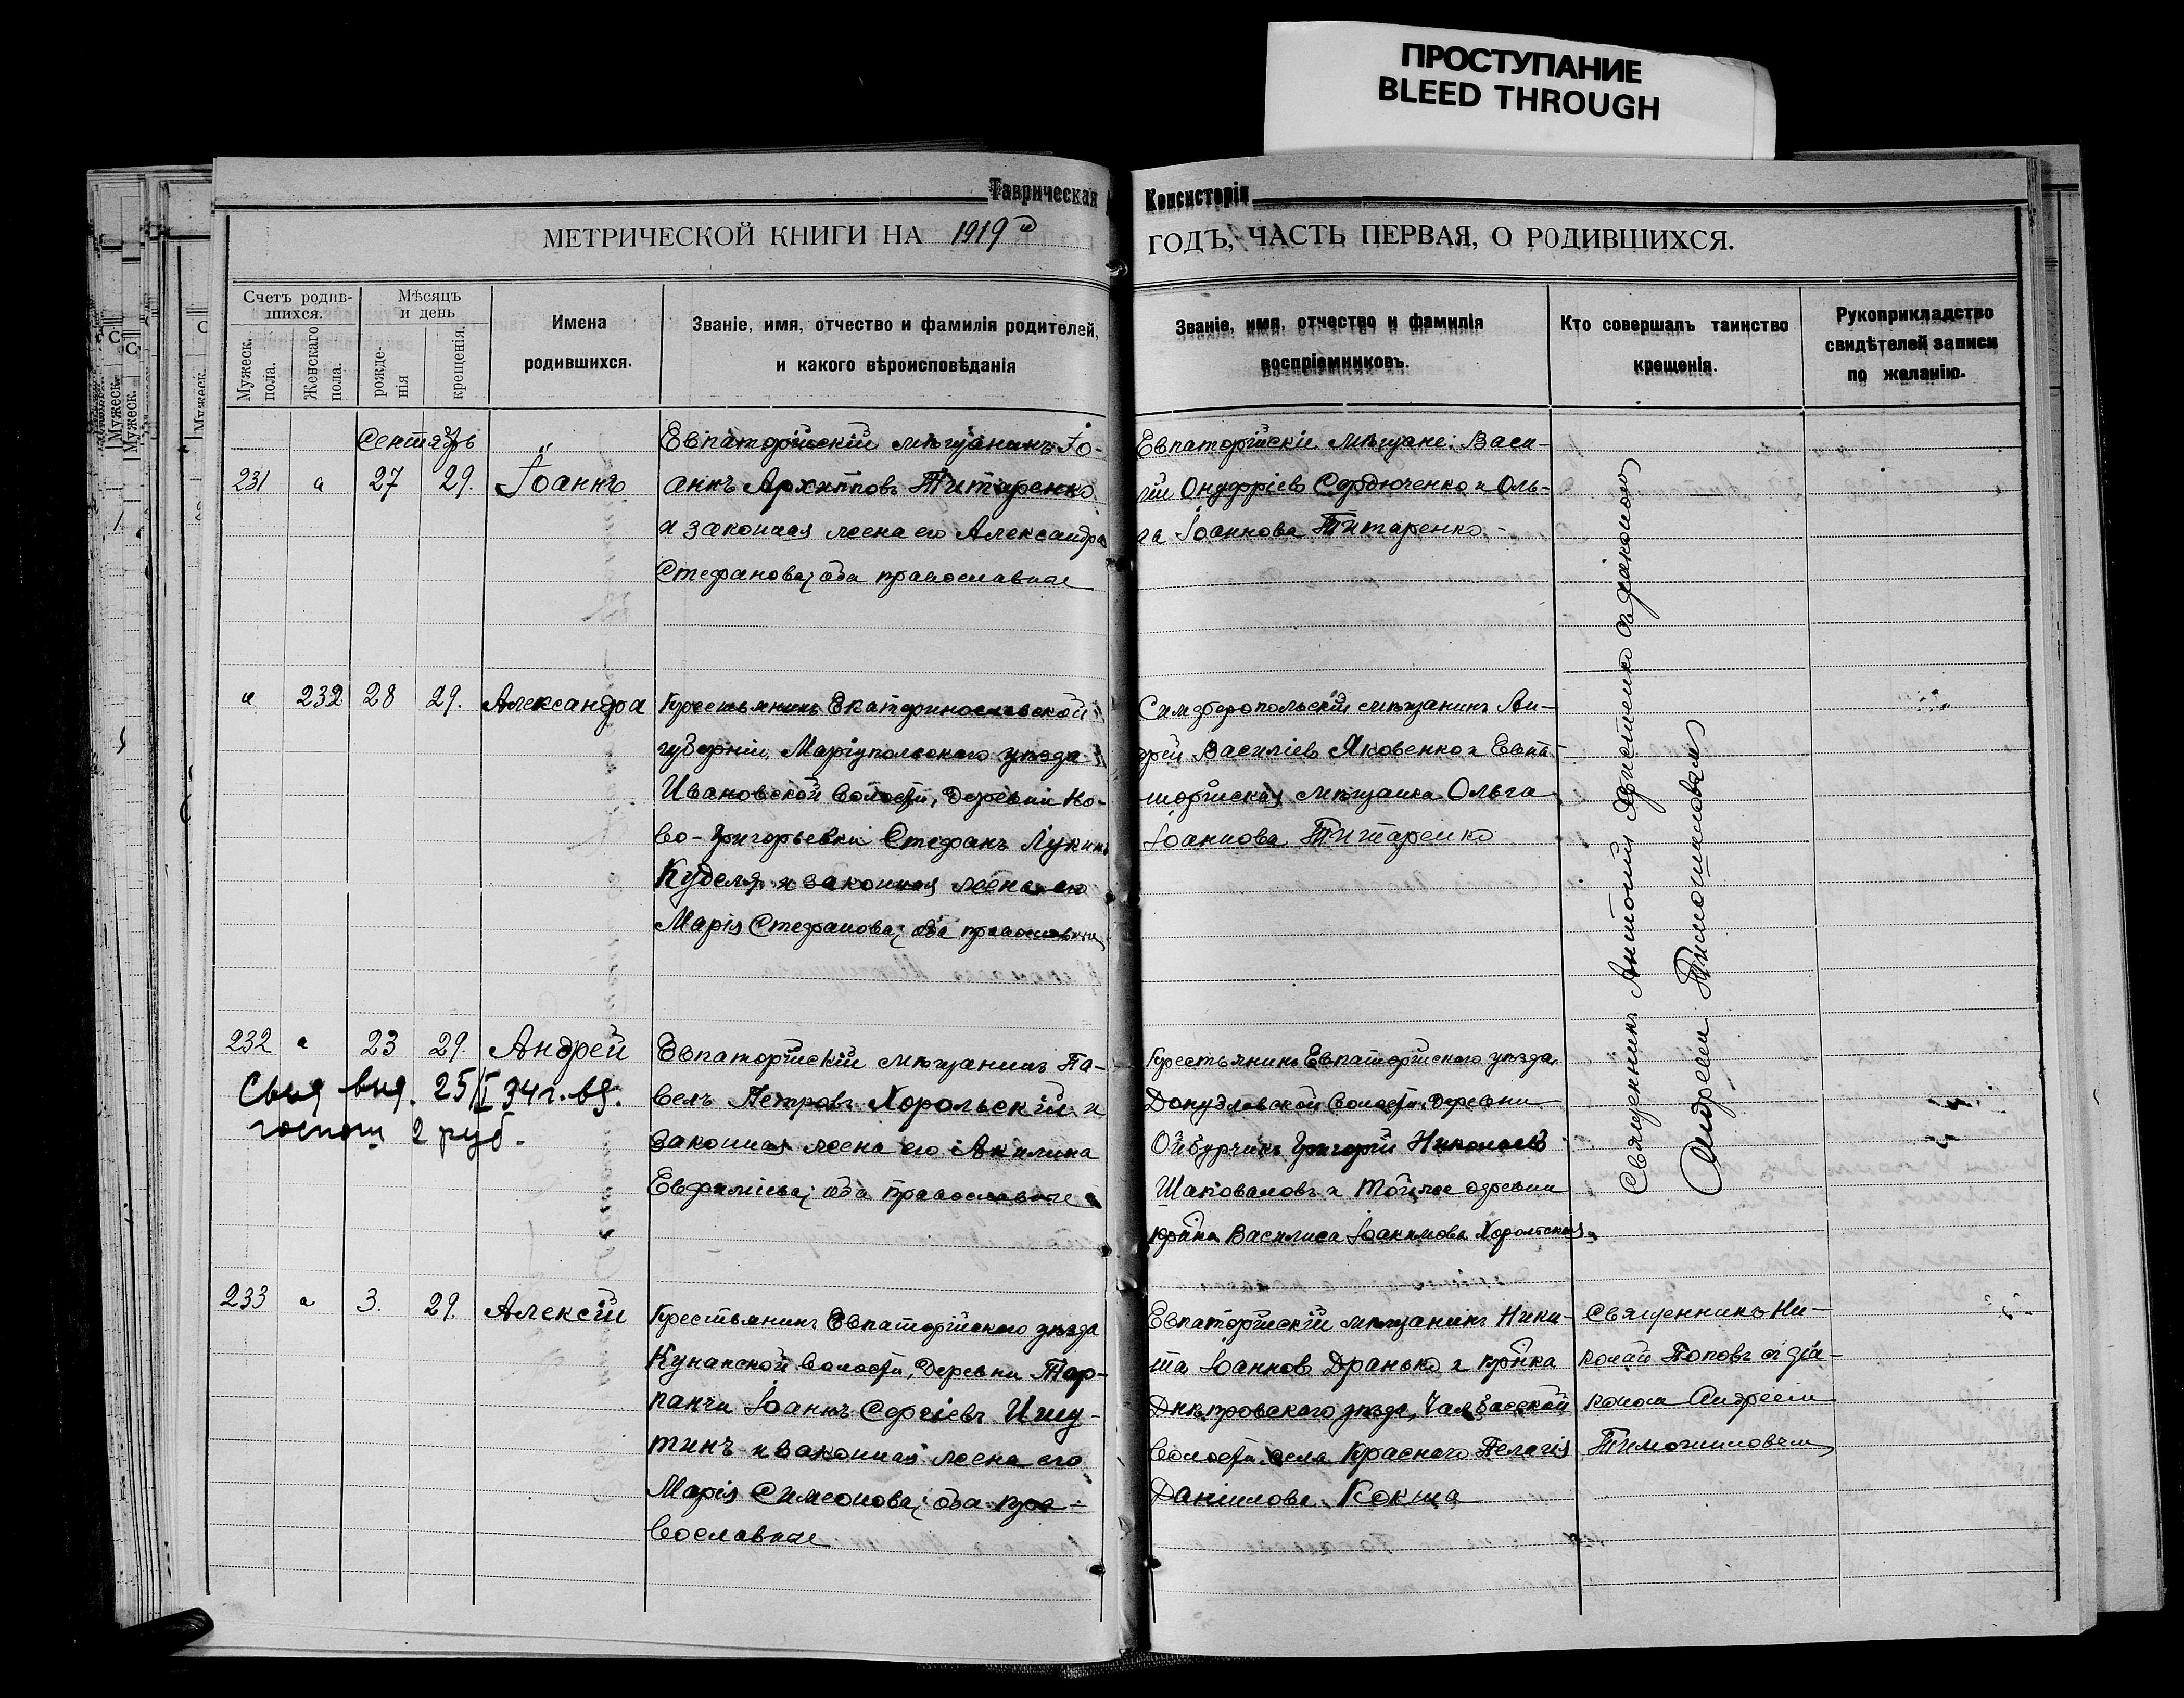 ПРОСТУПАНИЕ
BLEED THROUGH
Таврическая
Консисторія
МЕТРИЧЕСКОЙ КНИГИ НА 1919й
ГОДЪ, ЧАСТЬ ПЕРВАЯ, О РОДИВШИХСЯ.
Счетъ родив-
шихся.
Мужеск. пола.
Женскаго пола.
Мѣсяцъ
и день
рожде-
нія
крещенія.
Имена
родившихся.
Званіе, имя, отчество и фамилія родителей,
и какого вѣроисповѣданія
Званіе, имя, отчество и фамилія
воспріемниковъ.
Кто совершалъ таинство
крещенія.
Рукоприкладство
свидѣтелей записи
по желанію.
Сентябрь
231 " 27 29. Іоаннъ
Евпаторійскій мѣщанинъ Іо-
аннъ Архипповъ Титаренко
и законная жена его Александра
Стефанова; оба православные
Евпаторійскіе мѣщане: Васи-
лій Онуфріевъ Сердюченко и Оль-
га Іоаннова Титаренко
" 232 28 29. Александра
Крестьянинъ Екатеринославской
губерніи, Маріупольскаго уѣзда
Ивановской волости, деревни Но-
во-Григорьевки Стефанъ Лукинъ
Куделя и законная жена его
Марія Стефанова; оба православны
Симферопольскій мѣщанинъ Ан-
дрей Василіевъ Яковенко и Евпа-
торійская мѣщанка Ольга
Іоаннова Титаренко
Священникъ Антоній Яресменко съ діакономъ
Андреемъ Тимошиловымъ
232 " 23 29. Андрей
Свид выд. 25/I 34г. вз.
госпош 2 руб.
Евпаторійскій мѣщанинъ Па-
велъ Петровъ Хорольскій и
законная жена его Акилина
Евфиміева; оба православные
Крестьянинъ Евпаторійскаго уѣзда
Донузлавской волости, деревни
Ойбурчикъ Григорій Николаевъ
Шаповаловъ и той же деревни
кр-нка Василиса Іоакимова Хорольская
233 " 3. 29. Алексій
Крестьянинъ Евпаторійскаго уѣзда
Кунанской волости, деревни Тар-
панчи Іоаннъ Сергіевъ Ишу-
тинъ и законная жена его
Марія Симеонова; оба пра-
вославные
Евпаторійскій мѣщанинъ Ники-
та Іоанновъ Дранько и кр-нка
Днѣпровскаго уѣзда, Чалбасской
волости села Краснаго Пелагія
Даніилова Кокша
Священникъ Ни-
колай Поповъ съ діа-
кономъ Андреемъ
Тимошиловымъ